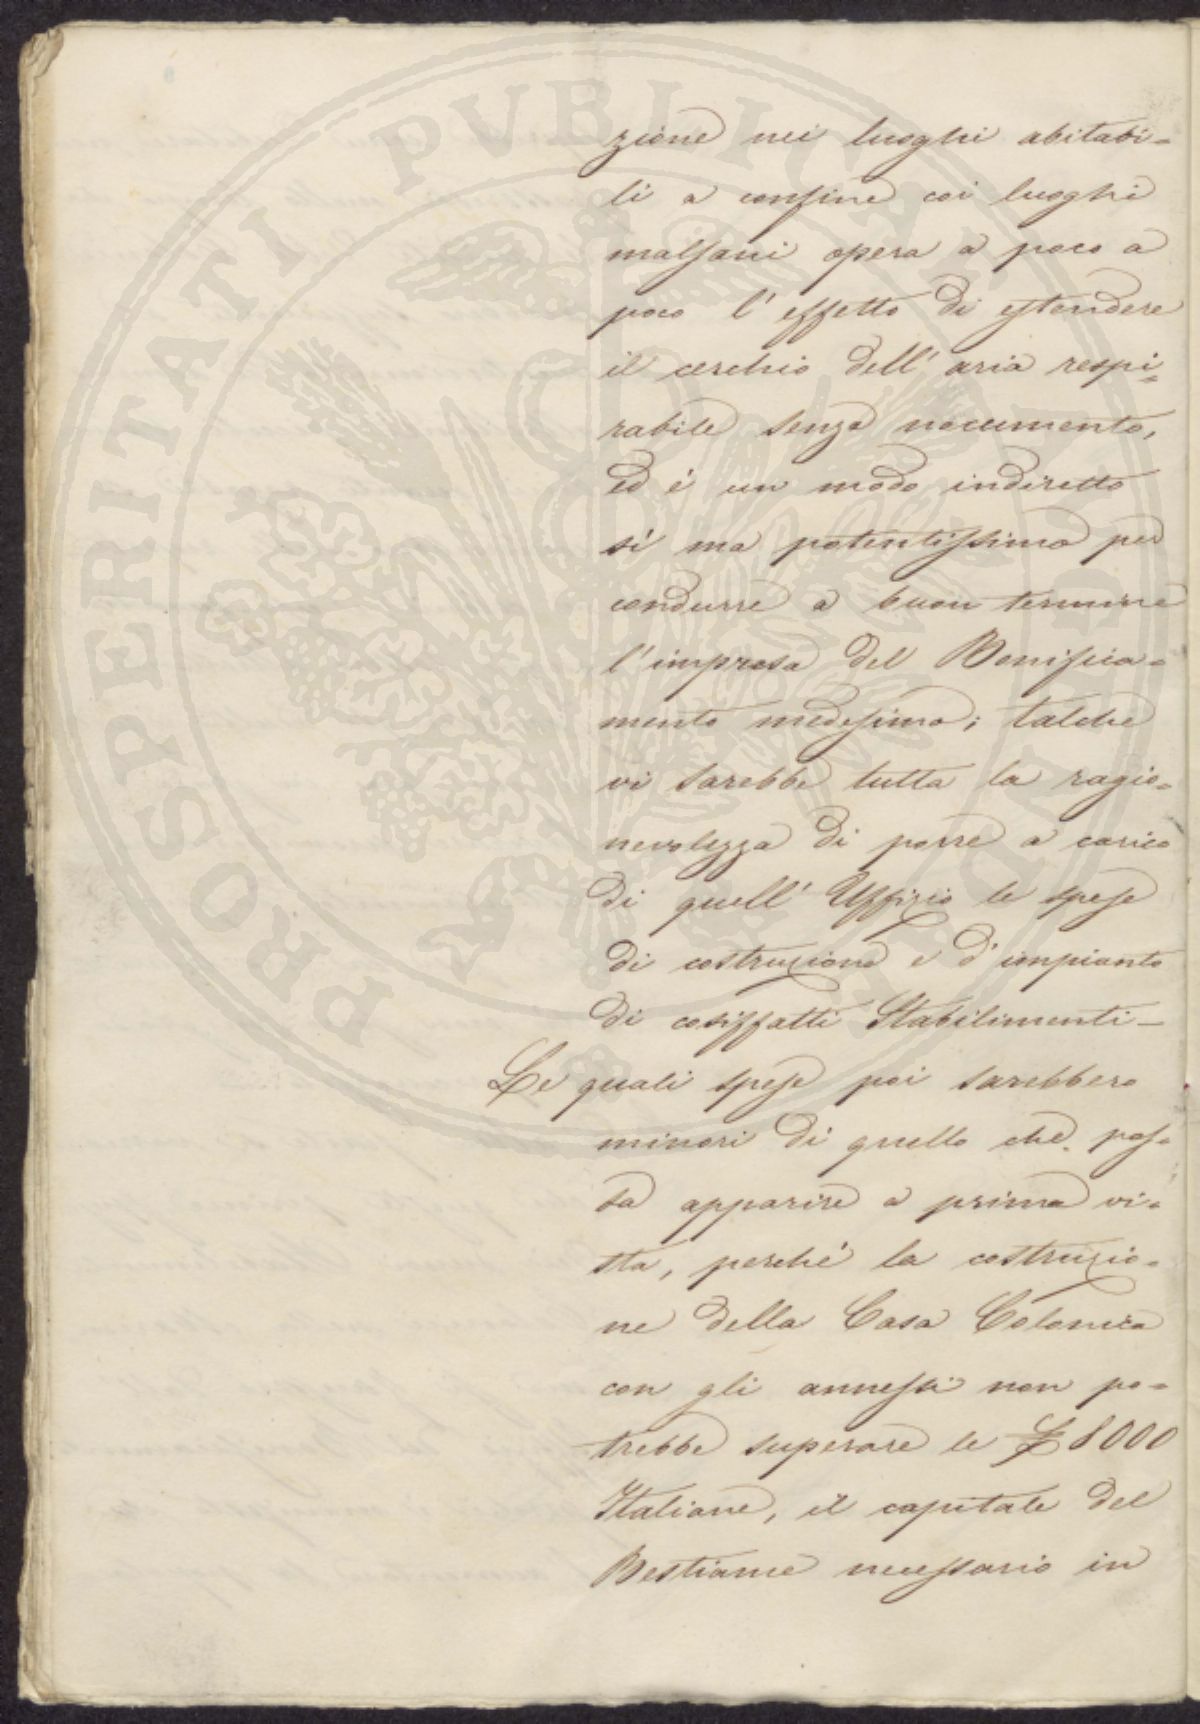 PROSPERITATI PVBLICAE
zione nei luoghi abitabi=
li a confine coi luoghi
malsani opera a poco a
poco l'effetto di estendere
il cerchio dell'aria respi=
rabile senza nocumento,
ed è un modo indiretto
sì ma potentissimo per
condurre a buon termine
l'impresa del Bonifica=
mento medesimo; talchè
vi sarebbe tutta la ragio=
nevolezza di porre a carico
di quell'Uffizio le spese
di costruzione e d'impianto
di cosiffatti Stabilimenti—
Le quali spese poi sarebbero
minori di quello che pos=
sa apparire a prima vi=
sta, perchè la costruzio=
ne della Casa Colonica
con gli annessi non po=
trebbe superare le £ 8000
Italiane, il capitale del
Bestiame necessario in